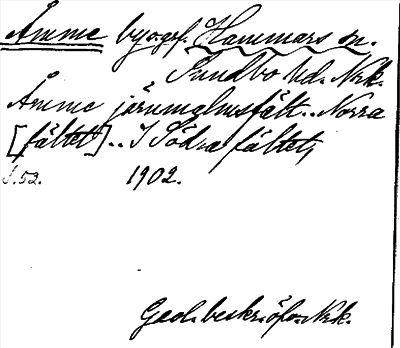 Åmme by o. grf. Hammars sn.
Sundbo hd. Nrk.
Åmme järnmalmsfält.. Norra
[fältet].. I Södra fältet,
s. 52. 1902.
Geol. beskr. öfv. Nrk.